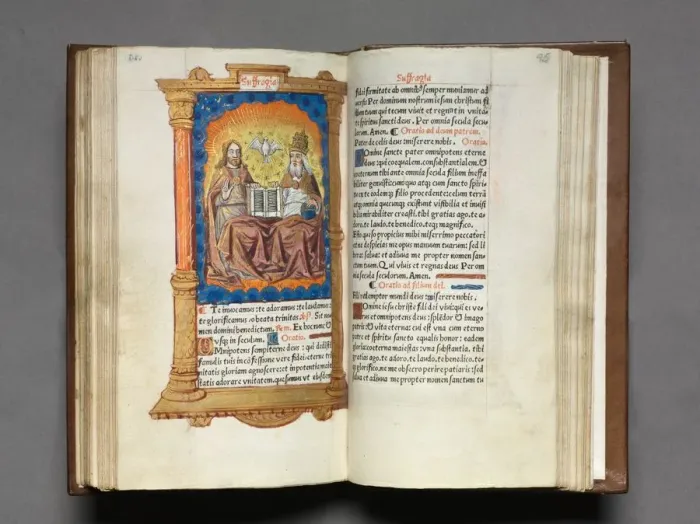 Suffragia
¶ Te inuocamus: te adoramus: te laudamus
te glorificamus o beata trinitas. Sit no
men domini benedictum. Ex hoc nunc
vsq; in seculum. Oratio.
OMnipotens sempiterne deus: qui dedisti
famulis tuis in cõfessione vere fidei: eterne tri
nitatis gloriam agnoscere: et in potentia maie
statis adorare vnitatem, quesumus vt eiusdem
Suffragia
fidei firmitate ab omnibꝰ semper muniamur ad
Per dominum nostrum iesum christum fi
lium tuum qui tecum viuit et regnat in vnita
te spiritus sancti deus. Per omnia secula secu
lorum. Amen. ¶ Oratio ad deum patrem.
Pater de celis deus: miserere nobis. Oratio.
DOmine sancte pater omnipotens eterne
deus: qui coequalem, consubstantialem, &
coeternum tibi ante omnia secula filium ineffa
biliter genuisti: cum quo atq; cum sancto spiri
tu ex te eodem filio procedente: celum terrã
et omnia quecunq; existunt visibilia et inuisi
bilia mirabiliter creasti, tibi gratias ago, te a
doro, te laudo, te benedico, teq; magnifico.
Esto queso propicius mihi miserrimo peccatori
et ne despicias me opus manuum tuarum: sed li
bera: salua: et adiuua me propter nomen san
ctum tuum. Qui viuis et regnas deus Per om
nia secula seculorum. Amen.
¶ Oratio ad filium dei.
Fili redemptor mundi deus: miserere nobis.
DOmine iesu christe fili dei viui: qui es ve
rus et omnipotens deus: splẽdor & imago
patris: & vita eterna: cui est vna cum eterno
patre et spiritu sancto equalis honor: eadem
gloria: coeterna maiestas: vna substantia, tibi
gratias ago, te adoro, te laudo, te benedico, te
glorifico, ne me obsecro perire patiaris: sed
salua et adiuua me propter nomen sanctum tu